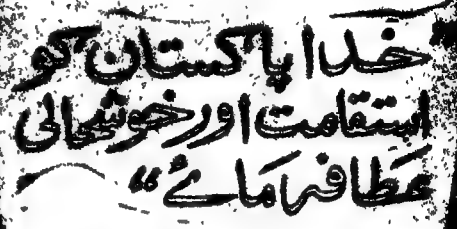 خدا پاکستان کو
استقامت اور خوشحالی
عطا فرمائے“